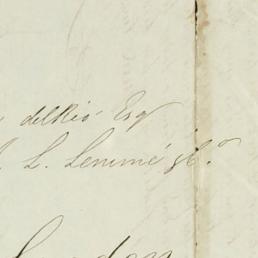 delRio Esq
L. Lemmé & Co
London